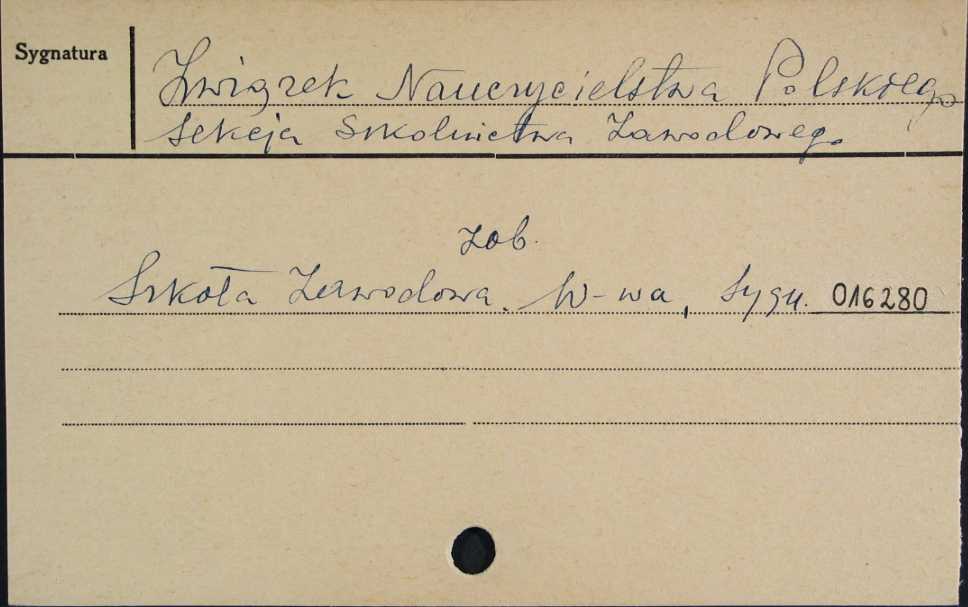 Sygnatura
Związek Nauczycielstwa Polskiego
Sekcja Szkolnictwa Zawodowego
zob.
Szkoła Zawodowa. W-wa, Sygn. 016280